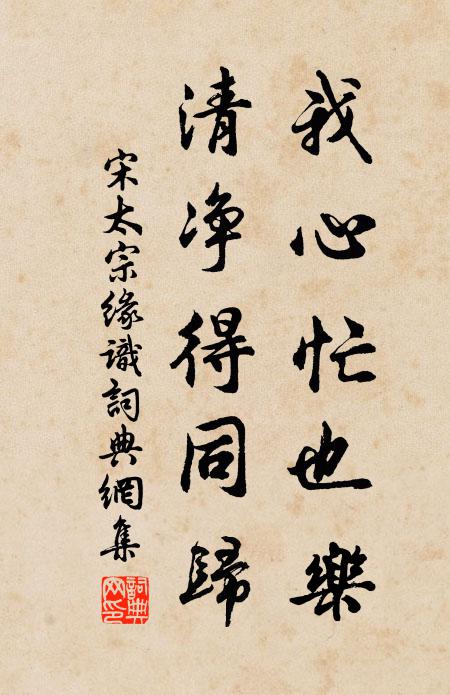 我心忙也樂
清净得同歸
宋太宗緣識詞典網集
詞典網印